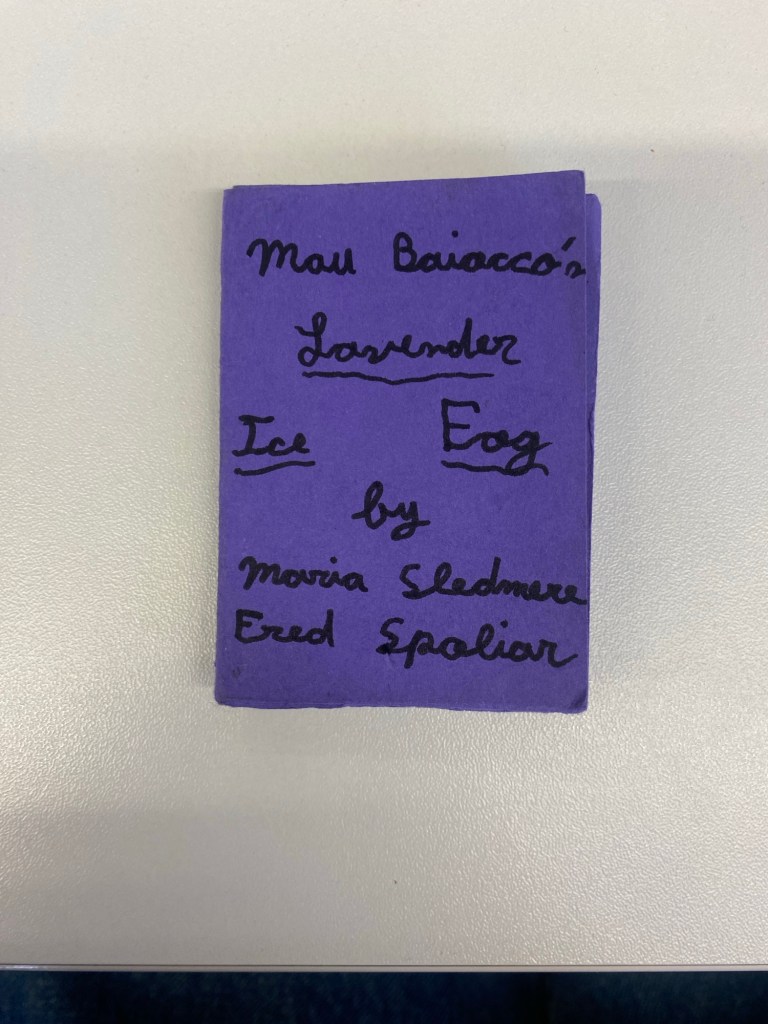 Mau Baiocco's
Lavender
Ice Fog
by
Maria Sledmere
Fred Spoliar